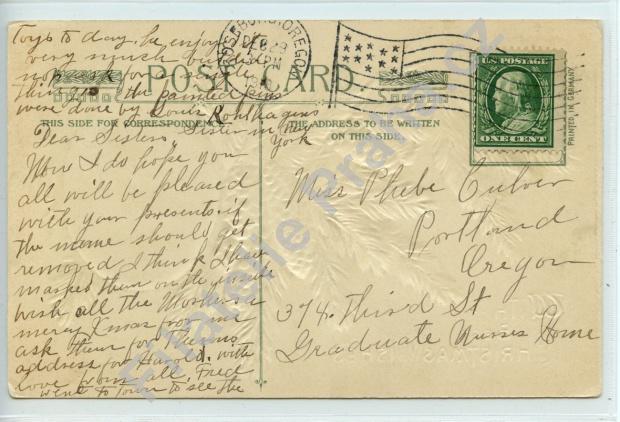 Toys to day. he enjoyed
very much but
not ask for a single
thing
POST CARD
the painted
were done by Louis
THIS SIDE FOR CORRESPONDENCE
Sister in New
York
Dear Sisters,
Now I do hope you
all will be pleased
with your presents. if
the name should get
removed I think I have
marked them on the inside
wish all the
merry Xmas for me
ask them for
address for Harold. with
love from all. Fred
went to town to see the
ROSEBURG, OREGON
DEC 23
U.S. POSTAGE
ONE CENT
PRINTED IN GERMANY
THE ADDRESS TO BE WRITTEN
ON THIS SIDE.
Miss Phebe Culver
Portland
Oregon
374. Third St
Graduate Nurses Home
Filatelie Praha.cz